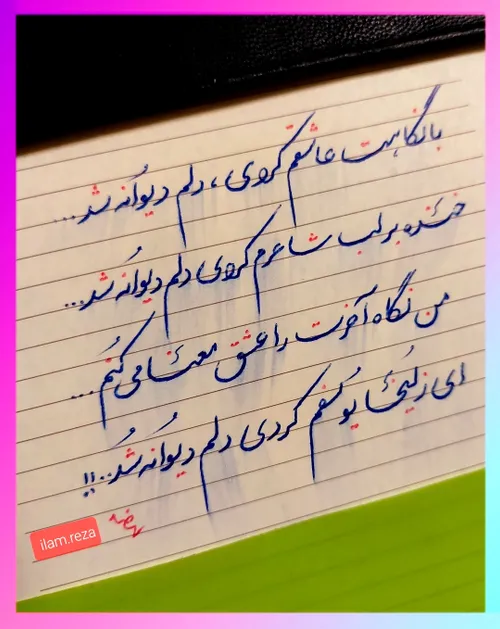 با نگاهت عاشقم کردی، دلم دیوانه شد...
خنده بر لب شاعرم کردی دلم دیوانه شد...
من نگاه آخرت را عشق معنا می کنم...
ای زلیخا یوسفم کردی دلم دیوانه شد..!!
ilam.reza